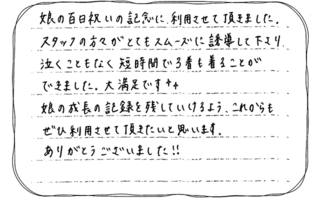 娘の百日祝いの記念に、利用させて頂きました。
スタッフの方々がとてもスムーズに誘導して下さり、
泣くこともなく短時間で3着も着ることが
できました。大満足です++
娘の成長の記録を残していけるよう、これからも
ぜひ利用させて頂きたいと思います。
ありがとうございました!!